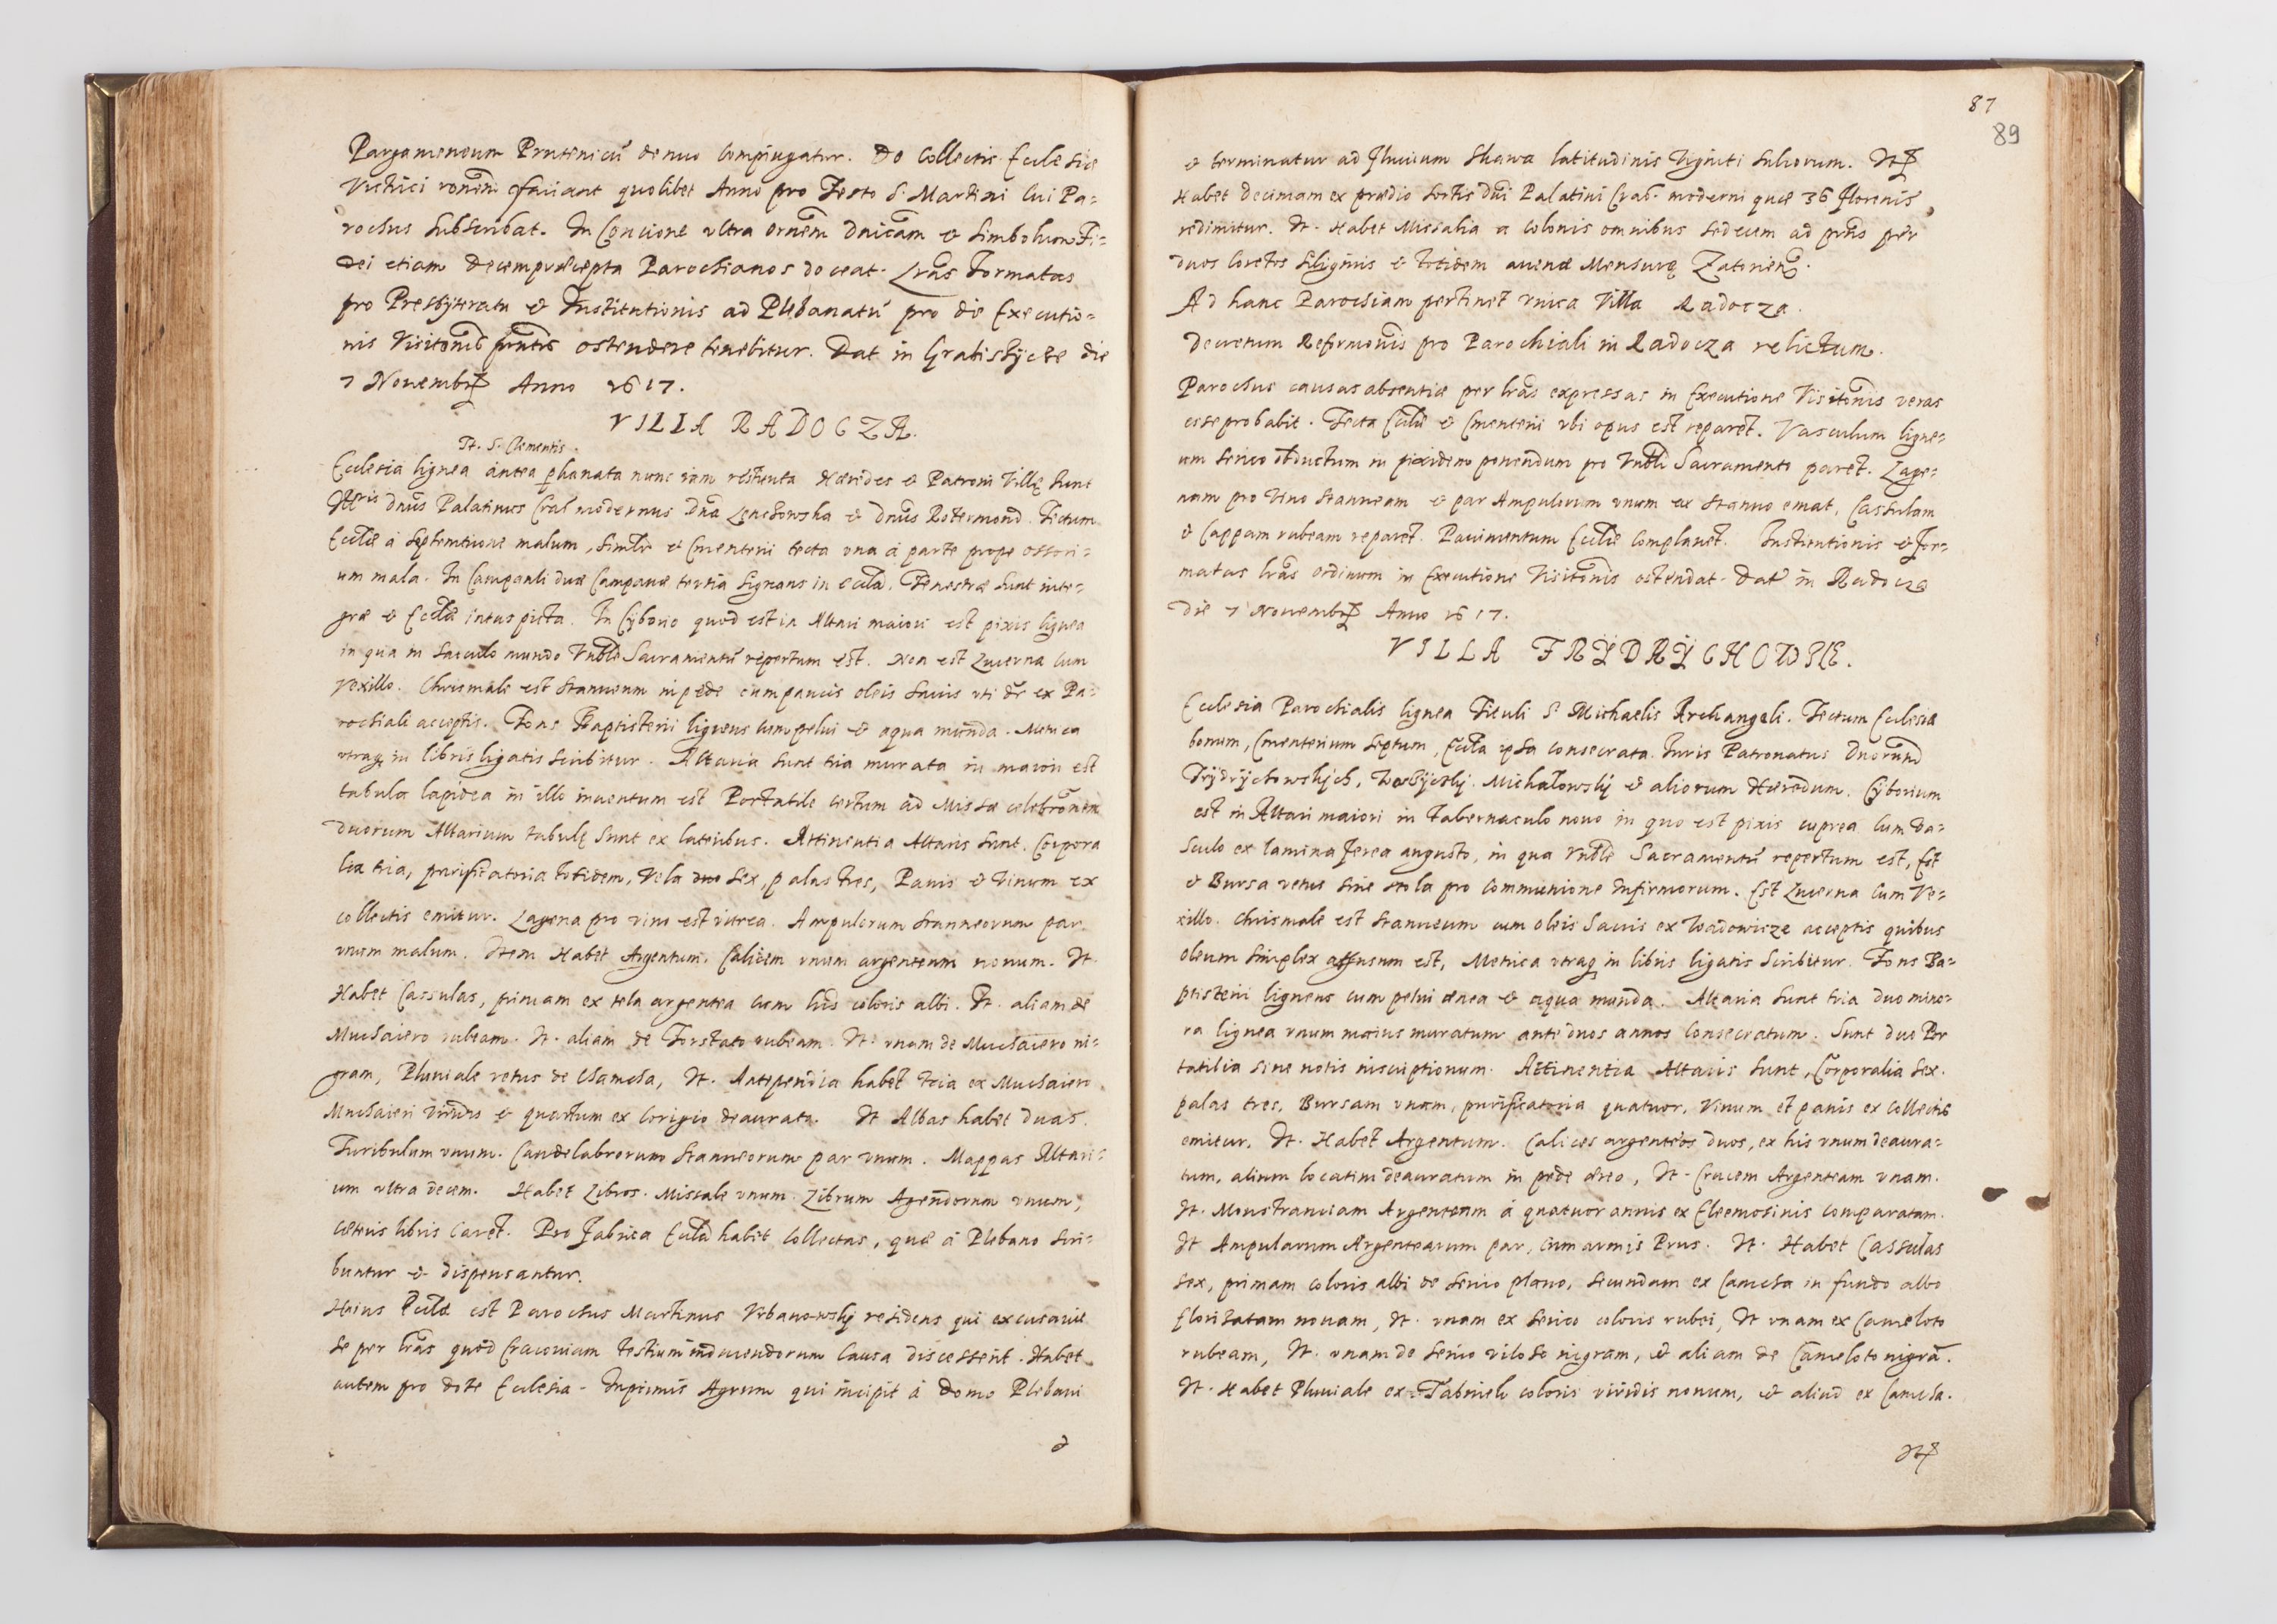 Pargameneum Prutenicũ denuo compingatur. De Collectis Ecclesiæ
Victrici ronem faciant quolibet Anno pro Festo S. Martini cui Pa-
rochus subscribat. In Concione ultra orñem Dñicam & Simbolum Fi-
dei etiam decem præcepta Parochianos doceat. Lras Formatas
pro Presbyteratu & Institutionis ad Plebanatũ pro die Executio-
nis Visitonis pñtis ostendere tenebitur. Dat. in Graboszyce die
7 Novembr Anno 1617.
VILLA RADOCZA.
Tt. S. Clementis.
Ecclesia lignea antea phanata nunc iam restituta Hæredes & Patroni Villę sunt
Illris Dnus Palatinus Crac modernus Dna Lenchowska & Dnus Rotermond. Tectum
Ecclæ à septemtrione malum, similr et Cmenterii tecta una à parte prope ossori-
um mala. In Campanili duæ Campanæ tertia signans in Eccla. Fenestræ sunt inte-
græ & Eccla intus picta. In Cyborio quod est in Altari maiori est pixis lignea
in qua in sacculo mundo Vnble Sacramentũ repertum est. Non est Lucerna cum
Vexillo. Chrismale est stanneum in pede cum pancis oleis sacris uti dr ex Pa-
rochiali acceptis. Fons Baptisterii ligneus cum pelui & aqua munda. Metrica
utraq in libris ligatis scribitur. Altaria sunt tria murata in maiori est
tabula lapidea in illo inuentum est Portatile certum ad Missæ celebronem
duorum Altarium tabulę sunt ex lateribus. Attinentia Altaris sunt. Corpora
lia tria, purificatoria totidem, Vela sex, palas tres, Panis & Vinum ex
collectis emitur. Lagena pro vino est vitrea. Ampulorum stanneorum par
unum malum. Item Habet Argentum. Calicem unum argenteum nouum. It.
Habet Cassulas, primam ex tela argentea cum coloris albi. It. aliam de
Muchaiero rubeam. It. aliam de Forstato rubeam. It. unam de Muchaiero ni-
gram, Pluuiale vetus de Chamcha, It. Antependia habet tria ex Muchaiero
Muchaieri viridis & quartum ex Corigio deaurato. It Albas habet duas.
Turibulum unum. Candelabrorum stanneorum par unum. Mappas Altari-
um ultra decem. Habet Libros. Missale unum. Librum Agendorum unum,
cæteris libris caret. Pro Fabrica Eccla habet collectas, quæ à Plebano scri-
buntur & dispensantur.
Huius Ecclæ est Parochus Martinus Vrbanowsky residens qui excusauit
se per lras quod Cracouiam testium inducendorum causa discesserit. Habet
autem pro dote Ecclesia. Inprimis Agrum qui incipit à domo Plebani
&
87
89
& terminatur ad fluuium Skawa latitudinis Viginti sulcorum. It
Habet decimam ex prædio sortis Dni Palatini Crac. moderni quæ 36 florenis
redimitur. It. Habet Missalia a Colonis omnibus sedecim ad pñs per
duos Coretos siliginis & totidem auenæ Mensurę Zatorien.
Ad hanc Parochiam pertinet unica Villa Radocza.
Decretum Reformonis pro Parochiali in Radocza relictum.
Parochus causas absentiæ per lras expressas in Executione Visitonis veras
esse probabit. Tecta Ecclæ & Cmenterii ubi opus est reparet. Vasculum ligne-
um serico obductum in pixidem ponendum pro Vnbli Sacramento paret. Lage-
nam pro Vino stanneam & par Ampulorum unum ex stanno emat. Cassulam
& Cappam rubeam reparet. Pauimentum Ecclæ complanet. Institutionis & for-
matas lras ordinum in Executione Visitonis ostendat. Dat in Radocza
die 7 Novembr Anno 1617.
VILLA FRYDRYCHOWICE.
Ecclesia Parochialis lignea Tituli S. Michaelis Archangeli. Tectum Ecclesiæ
bonum, Cmenterium septum, Eccla ipsa consecrata. Iuris Patronatus Dnorum
Frydrychowskych, Michałowsky & aliorum Hæredum. Cyborium
est in Altari maiori in tabernaculo nouo in quo est pixis cuprea cum va-
sculo ex lamina ferea angusto, in qua Vnble Sacramentũ repertum est, Est
& Bursa vetus sine stola pro communione Infirmorum. Est Lucerna cum Ve-
xillo. Chrismale est stanneum cum oleis sacris ex Wadowicze acceptis quibus
oleum simplex affusum est, Metrica utraq in libris ligatis scribitur. Fons Ba-
ptisterii ligneus cum pelui ænea & aqua munda. Altaria sunt tria duo mino-
ra lignea unum maius muratum ante duos annos consecratum. Sunt duo Por
tatilia sine notis inscriptionum. Attinentia Altaris sunt, Corporalia sex.
palas tres, Bursam unam, purificatoria quatuor, Vinum et panis ex collectis
emitur. It. Habet Argentum. Calices argenteos duos, ex his unum deaura-
tum, alium locatim deauratum in pede æreo, It. Crucem Argenteam unam.
It. Monstranciam Argenteam à quatuor annis ex Eleemosinis comparatam.
It Ampularum Argentearum par, cum armis Prus. It. Habet Cassulas
sex, primam coloris albi de serico plano, secundam ex Camcha in fundo albo
florisatam nouam, It. unam ex serico coloris rubei, It unam ex Cameloto
rubeam, It. unam de serico viloso nigram, & aliam de Cameloto nigrã.
It. Habet Pluuiale ex Tabineli coloris viridis nouum, & aliud ex Camcha.
It